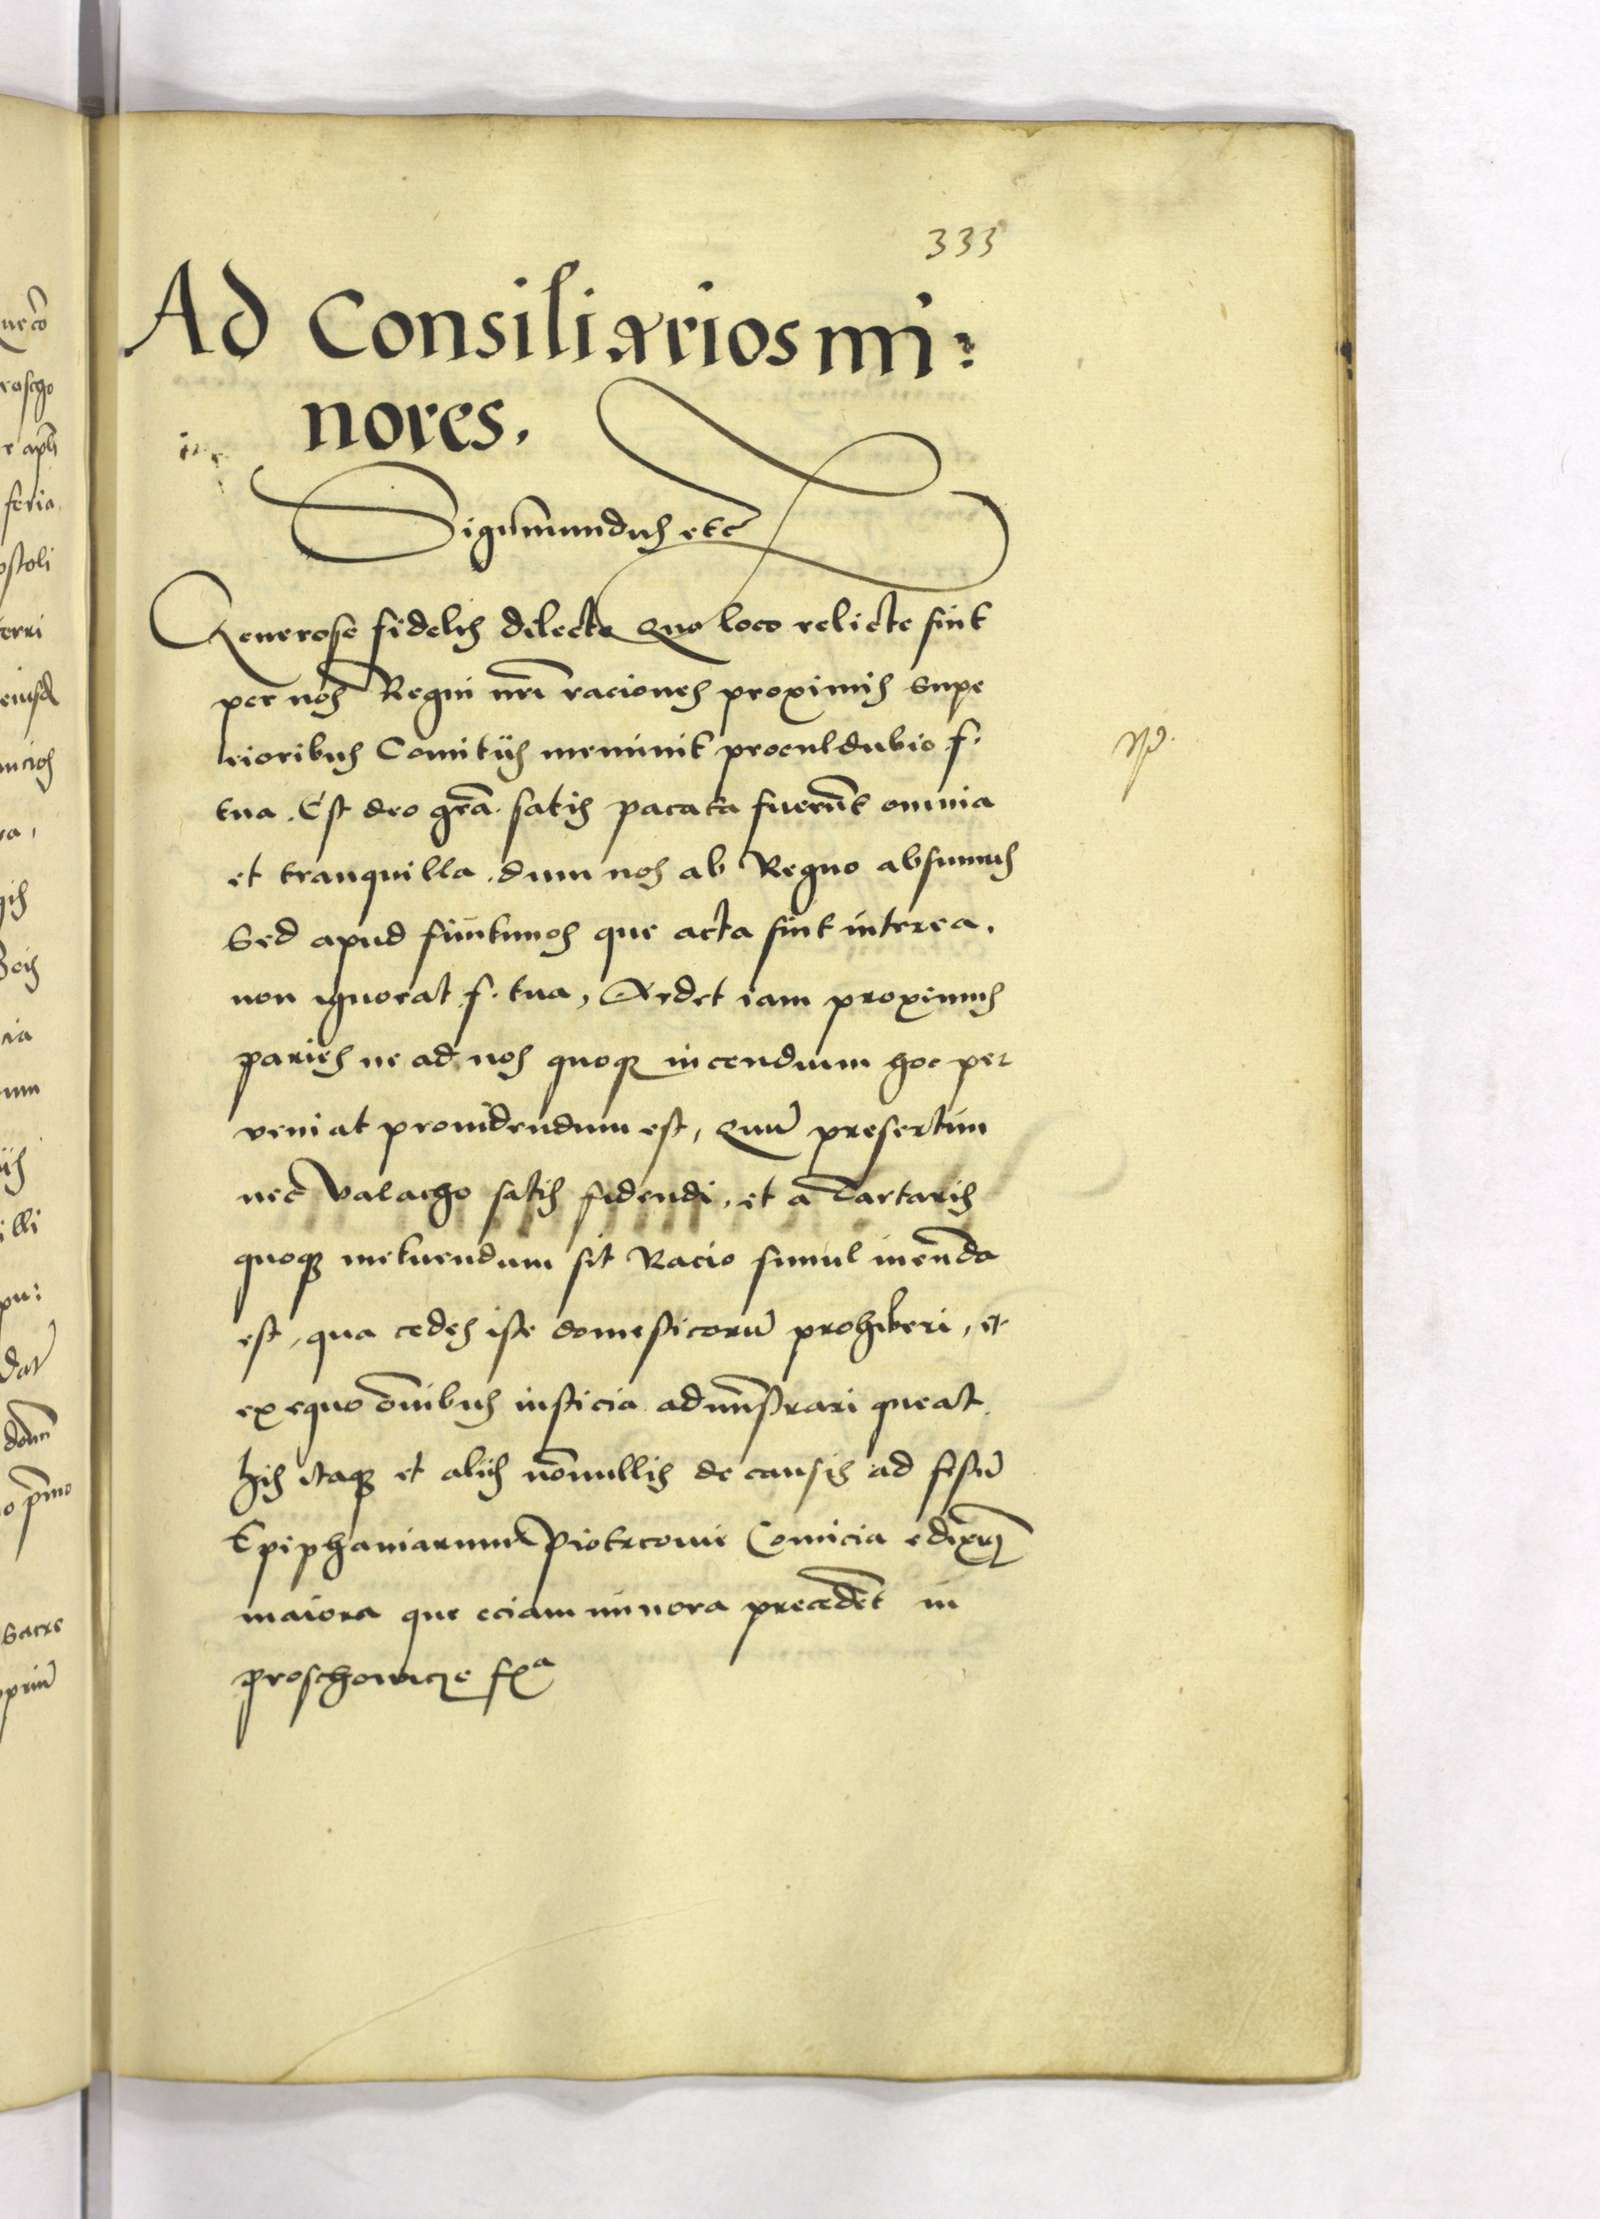 333
Ad Consiliarios mi:
nores.
Sigismundus etc
Generose fidelis dilecte Quo loco relicte sint
per nos Regni nrī raciones proximis supe
rioribus Comitiis meminit proculdubio f.
tua. Est deo grā. satis pacata fuerūt omnia
et tranquilla. dum nos ab Regno absumus
Sed apud finitimos que acta sint interea.
non ignorat f. tua, Ardet iam proximus
paries ne ad nos quoqꝫ incendium hoc per
veniat providendum est, Quū presertim
nec Valacho satis fidendū, et a Tartaris
quoqꝫ metuendum sit Racio simul ineūda
est, qua cedes iste domesticorū prohiberi, et
ex equo oībus iusticia admīstrari queat.
His itaqꝫ et aliis nōnullis de causis ad festū
Epiphaniarum Piotrcovie Comicia ediximꝰ
maiora que eciam minora precedēt in
proschowicze